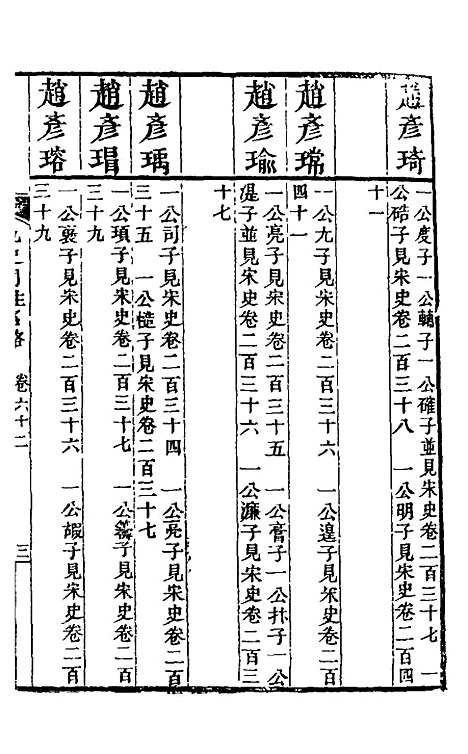 趙彥琦
一公度子一公輔子一公確子並見宋史卷二百三十七 一
公硞子見宋史卷二百三十八 一公明子見宋史卷二百四
十一
趙彥㻿
一公尢子見宋史卷二百三十六 一公遑子見宋史卷二百
四十一
趙彥瑜
一公亮子見宋史卷二百三十五 一公膏子一公
子並見宋史卷二百三十六 一公濂子見宋史卷二百三
十七
趙彥瑀
一公司子見宋史卷二百三十四 一公亮子見宋史卷二百
三十五 一公慥子見宋史卷二百三十七
趙彥琩
一公頊子見宋史卷二百三十七 一公子見宋史卷二百
三十九
趙彥瑢
一公襃子見宋史卷二百三十六 一公嘏子見宋史卷二百
三十九
史同姓名略 卷六十二 三